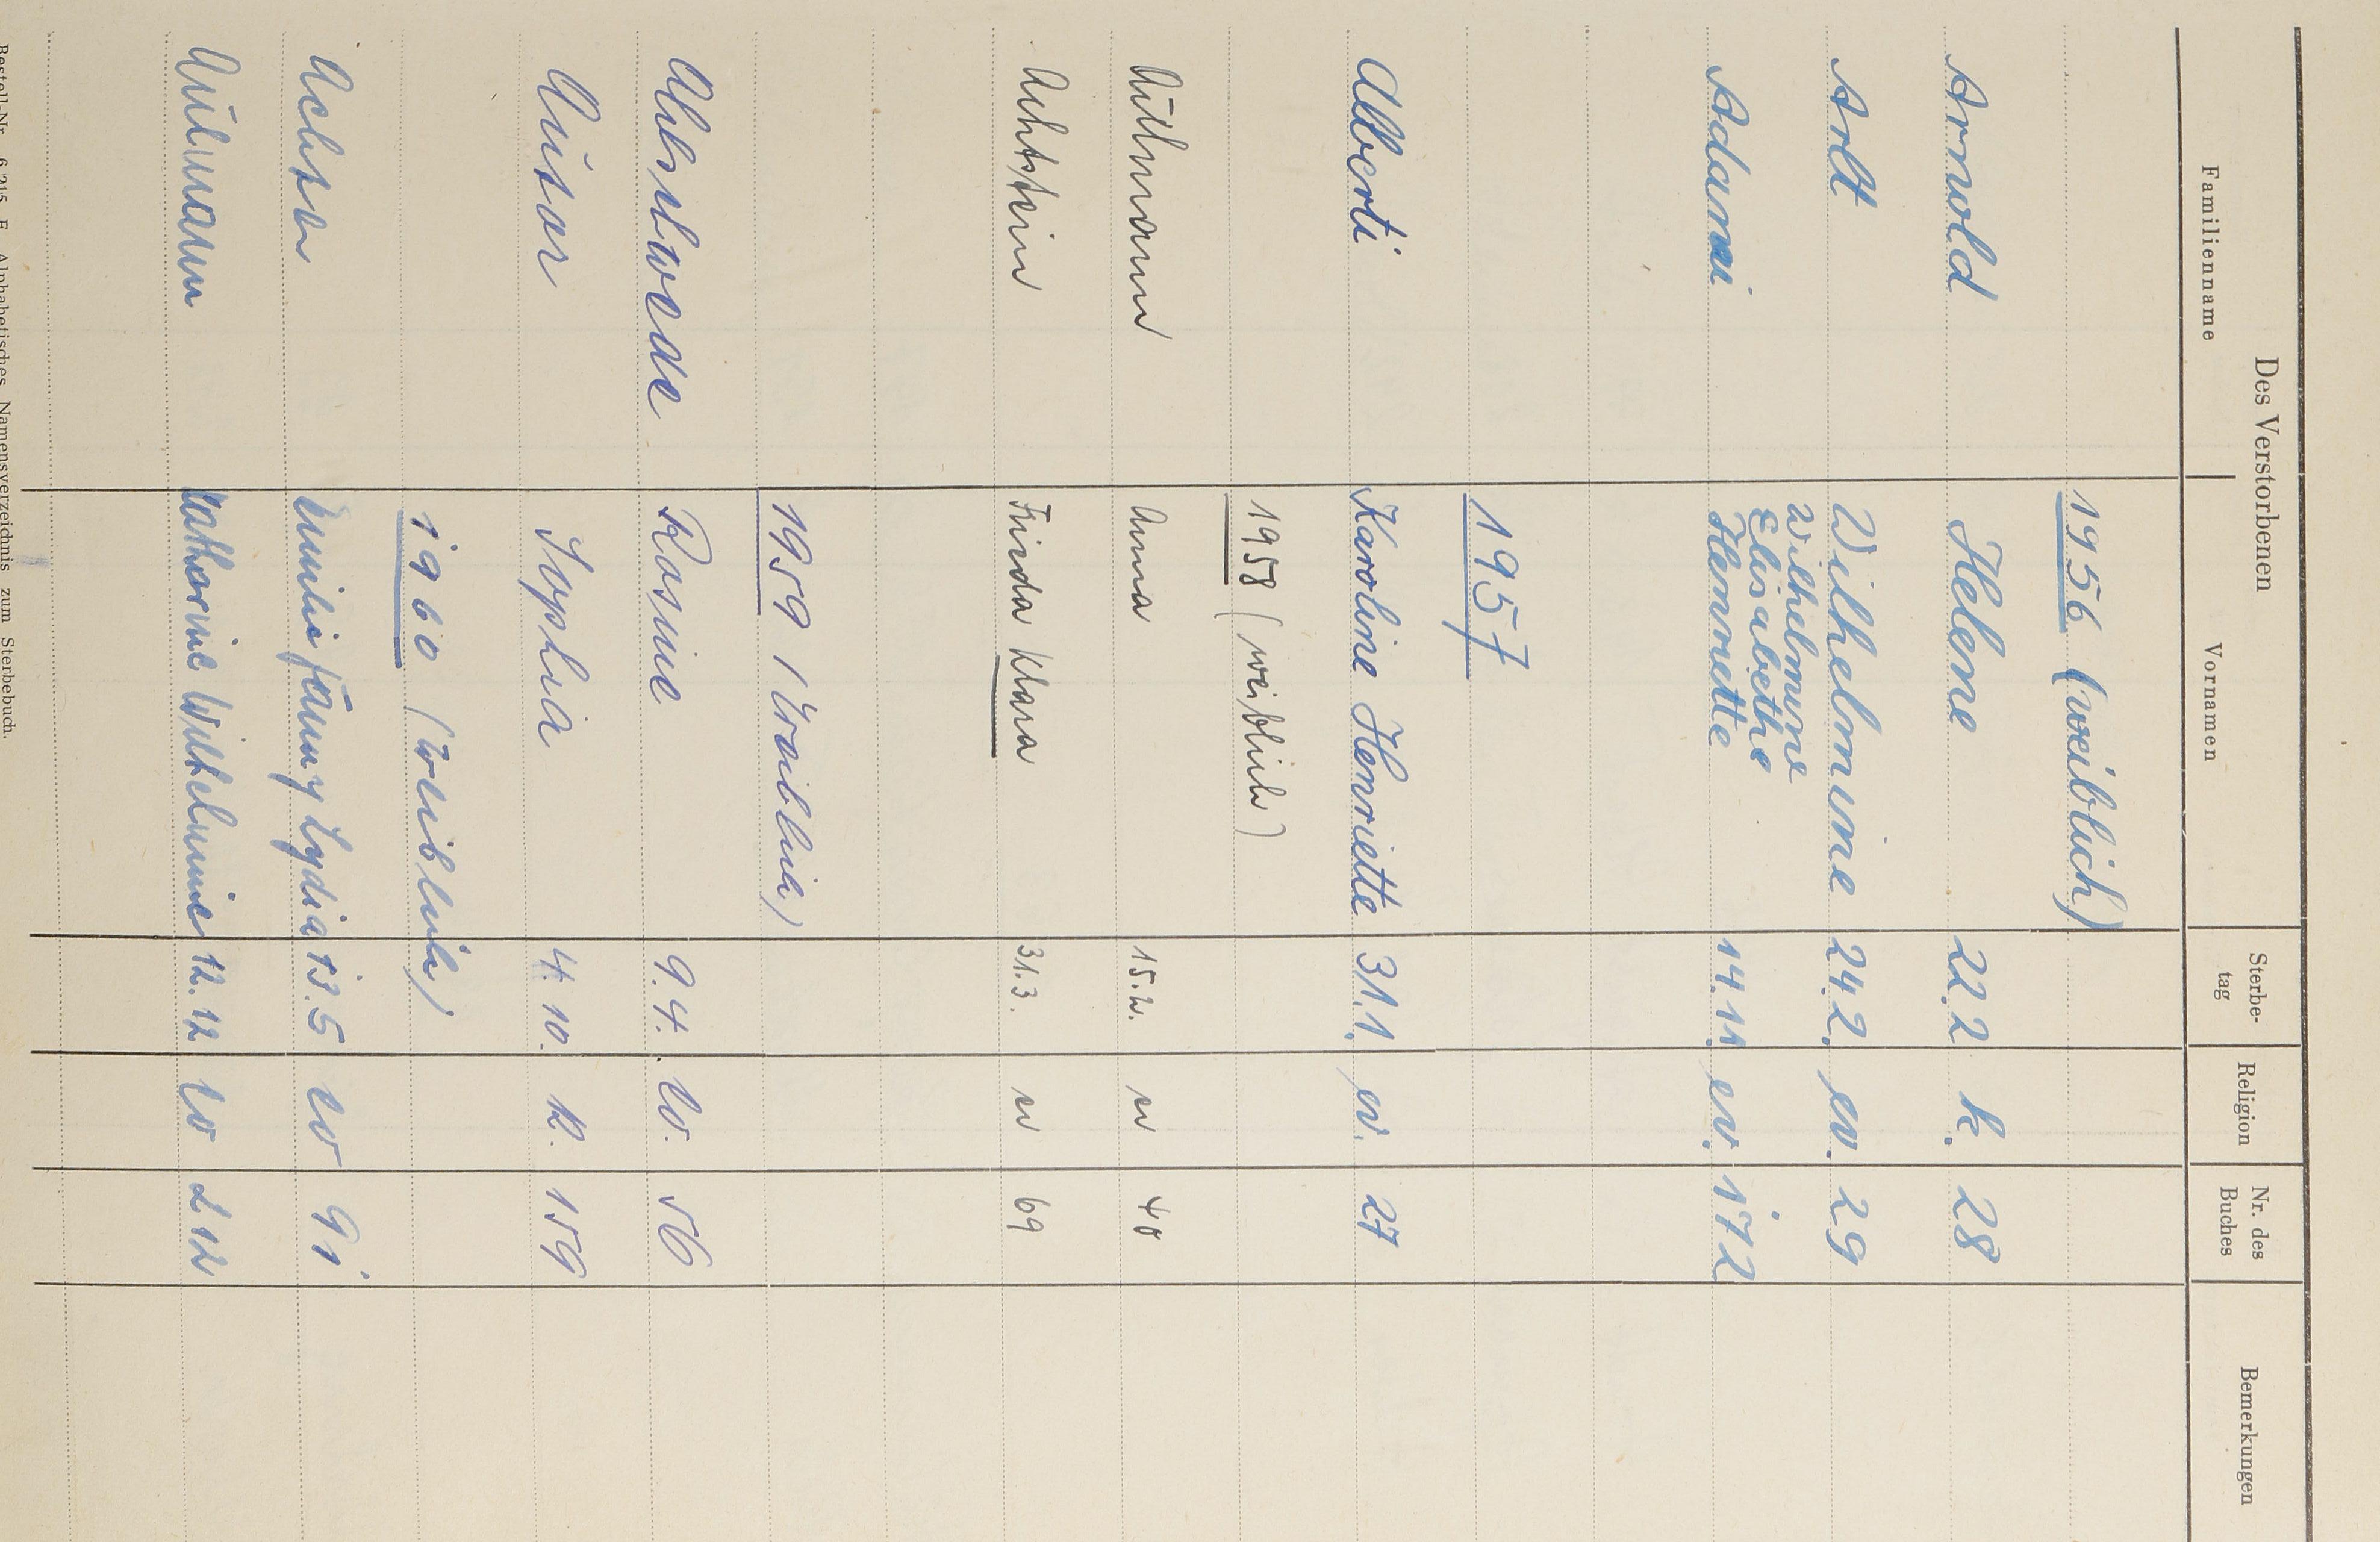 Des Verstorbenen
Familienname Vornamen Sterbe-tag Religion Nr. des Buches Bemerkungen
1956 (weiblich)
Arnold Helene 22.2 k. 28
Arlt Wilhelmine 24.2. ev. 29
Wilhelmine
Elisabethe
Adami Henriette 14.11. ev. 172
1957
Alberti Karoline Henriette 31.1. ev. 27
1958 (weiblich)
Aulmann Anna 15.2. ev 40
Achtstein Frieda Klara 31.3. ev 69
1959 (weiblich)
Rosine 9.4. ev. 56
Sophia 4.10. 159
1960 (weiblich)
Fanny Lydia 13.5 ev 91
Aulmann Katharine Wilhelmine 12.12 ev 212
Bestell-Nr. 6 215 E Alphabetisches Namensverzeichnis zum Sterbebuch.